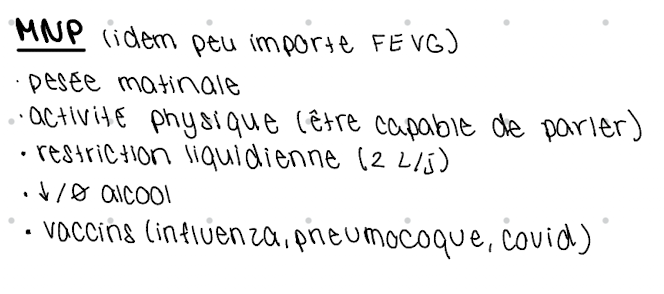 MNP (idem peu importe FEVG)
· pesée matinale
· activité physique (être capable de parler)
· restriction liquidienne (2 L/j)
· ↓/∅ alcool
· vaccins (influenza, pneumocoque, covid)